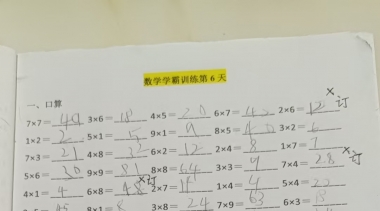 数学学霸训练第6天
一、口算
7×7= 49 3×6= 18 4×5= 20 6×7= 42 2×6= 12 ×订
1×2= 2 5×1= 5 9×1= 9 8×5= 40 3×2= 6
7×3= 21 4×8= 32 6×2= 12 2×4= 8 1×7= 7
5×6= 30 9×9= 81 8×8= 3×3= 9 7×4= 28 ×订
4×1= 4 6×8= 48 ×订 2×7= 14 1×4= 4 5×4= 20
8×1= 8 3×8= 24 7×9= 63 6×3= 18